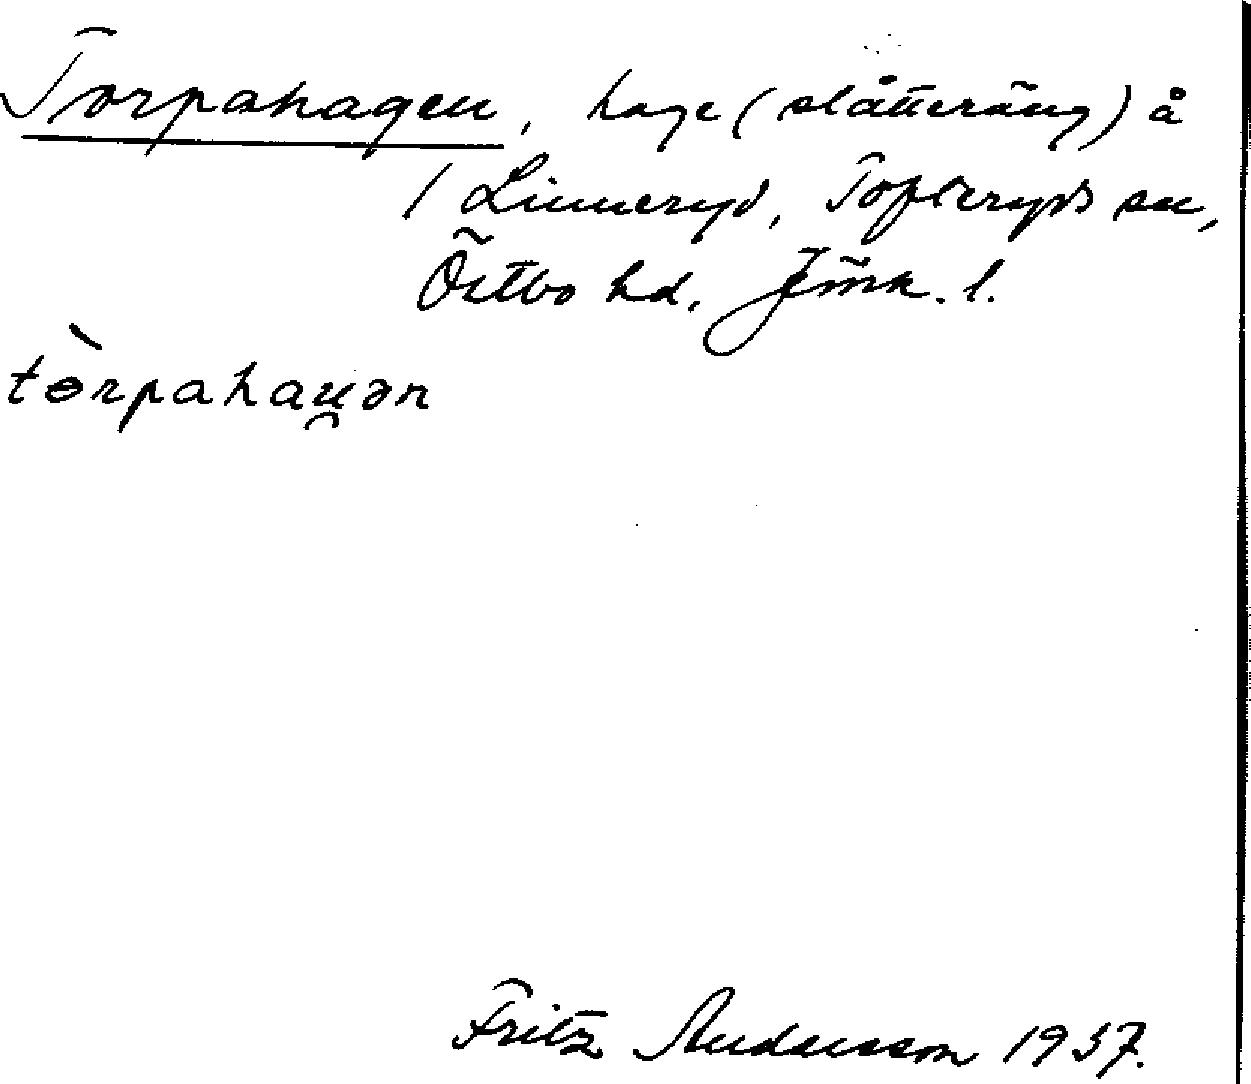 Torpahagen, hage (slåtteräng) å
/ Linneryd, Tofteryds sn,
Östbo hd, Jönk. l.
tɵ̀rpahau̯ən
Fritz Andersson 1937.